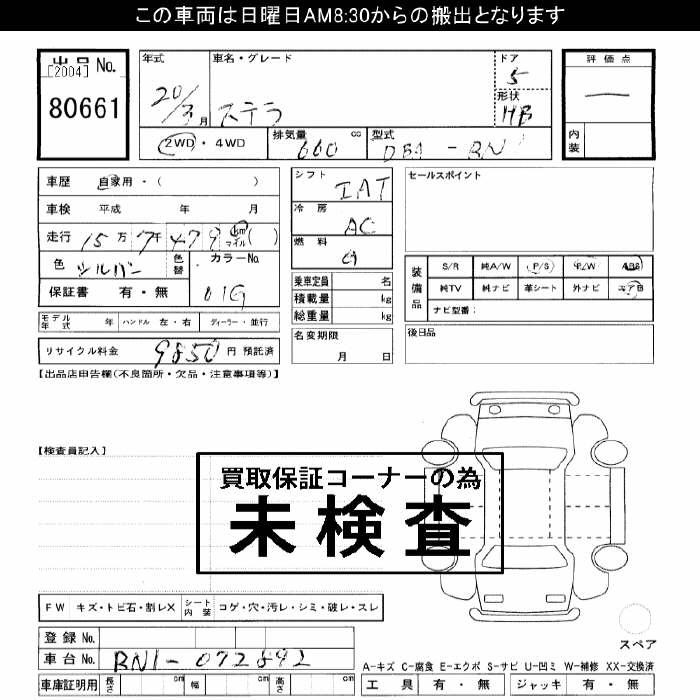 この車両は日曜日AM8:30からの搬出となります
出品 No.
[2004]
80661
年式 20/3月
車名・グレード ステラ
ドア 5
形状 HB
2WD・4WD
排気量 660 cc
型式 DBA-RN1
評価点 一
内装
車歴 自家用・( )
車検 平成 年 月
走行 15万7千479 km マイル( )
色 シルバー 色替 カラーNo. 01G
保証書 有・無
モデル年式 年 ハンドル 左・右 ディーラー・並行
リサイクル料金 9850 円 預託済
シフト IAT
冷房 AC
燃料 G
乗車定員 名
積載量 kg
総重量 kg
名変期限 月 日
セールスポイント
装備品 S/R 純A/W P/S P/W ABS
純TV 純ナビ 革シート 外ナビ エアB
ナビ型番:
後日品
【出品店申告欄(不良箇所・欠品・注意事項等)】
【検査員記入】
買取保証コーナーの為
未検査
FW キズ・トビ石・割レX シート内装 コゲ・穴・汚レ・シミ・破レ・スレ
登録 No.
車台 No. RN1-072892
車庫証明用 長さ cm 幅 cm 高さ cm
スペア
A-キズ C-腐食 E-エクボ S-サビ U-凹ミ W-補修 XX-交換済
工具 有・無 ジャッキ 有・無